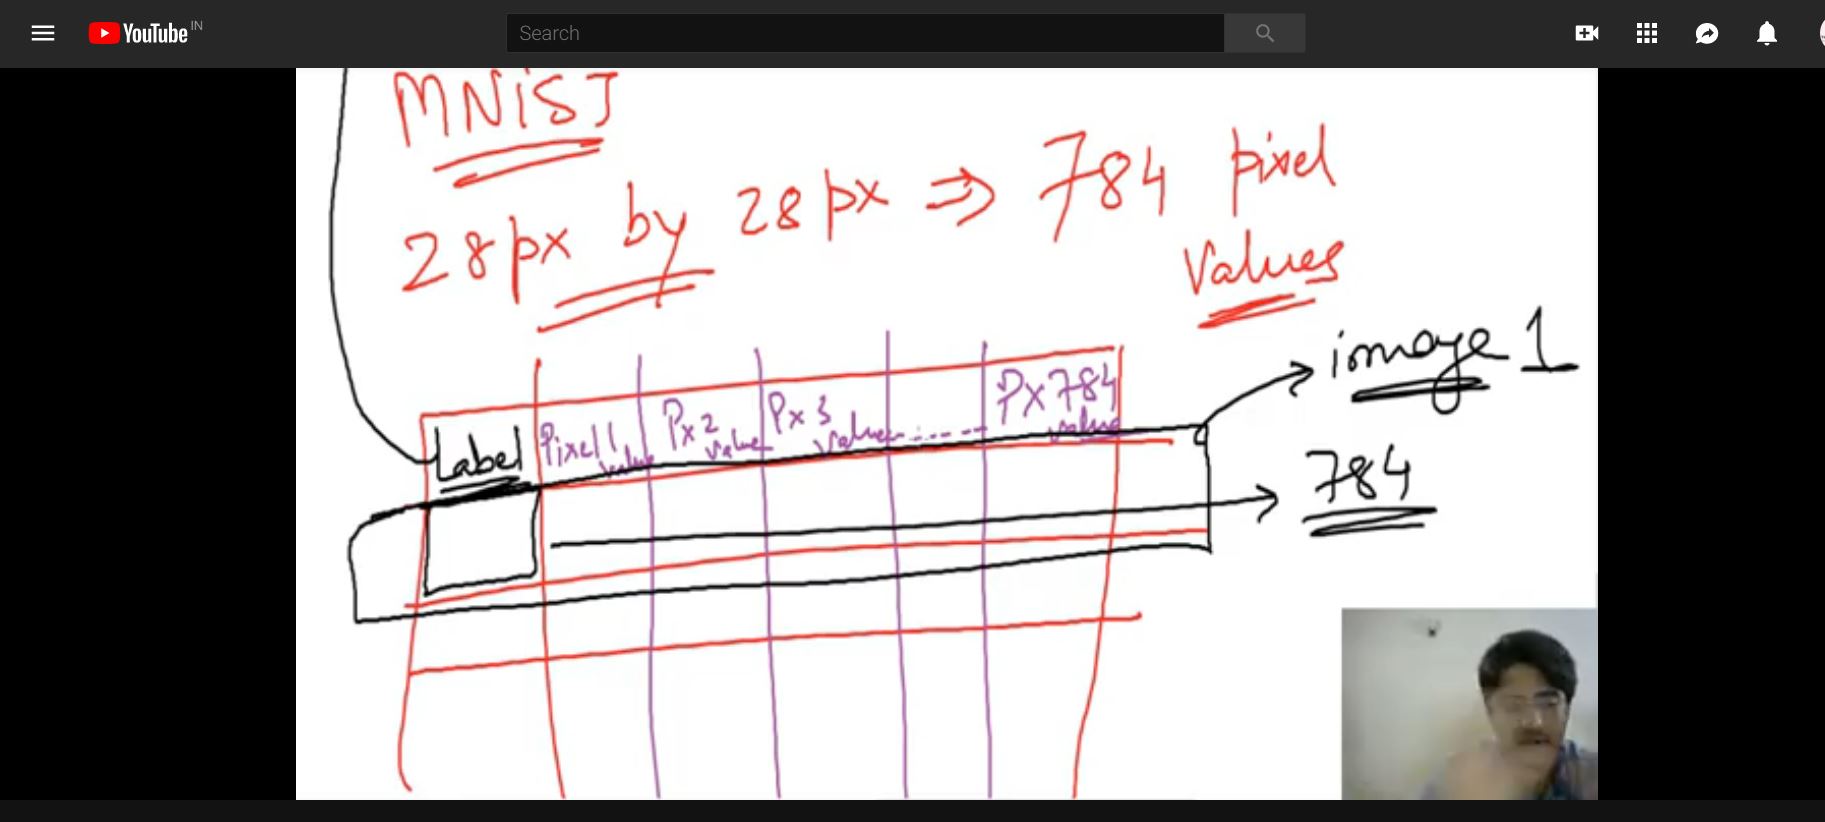 YouTube IN
Search
MNiST
28px by 28px ⇒ 784 pixel
values
image 1
Label Pixel 1 value Px 2 value Px 3 value ...... Px 784 value
784